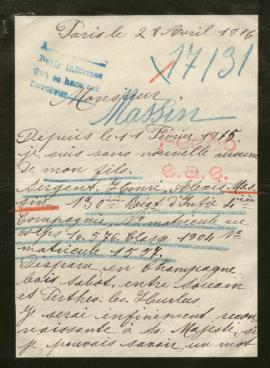 Paris le 28 Avril 1916
17131
Monsieur
Massin
Depuis le 11 Fevrier 1915
je suis sans nouvelle aucune
de mon fils.
Sergent, Henri, Alexis Mas
sin 130me Regt d'Infie 4ie
Compagnie, No matricule au
corps 16.576 Classe 1904 No
matricule 1597.
Disparu en champagne
bois Sabot, entre Souain
et Perthes les Hurlus
Je serai infiniment recon
naissante à Sa Majesté, si
je pouvais savoir un mot